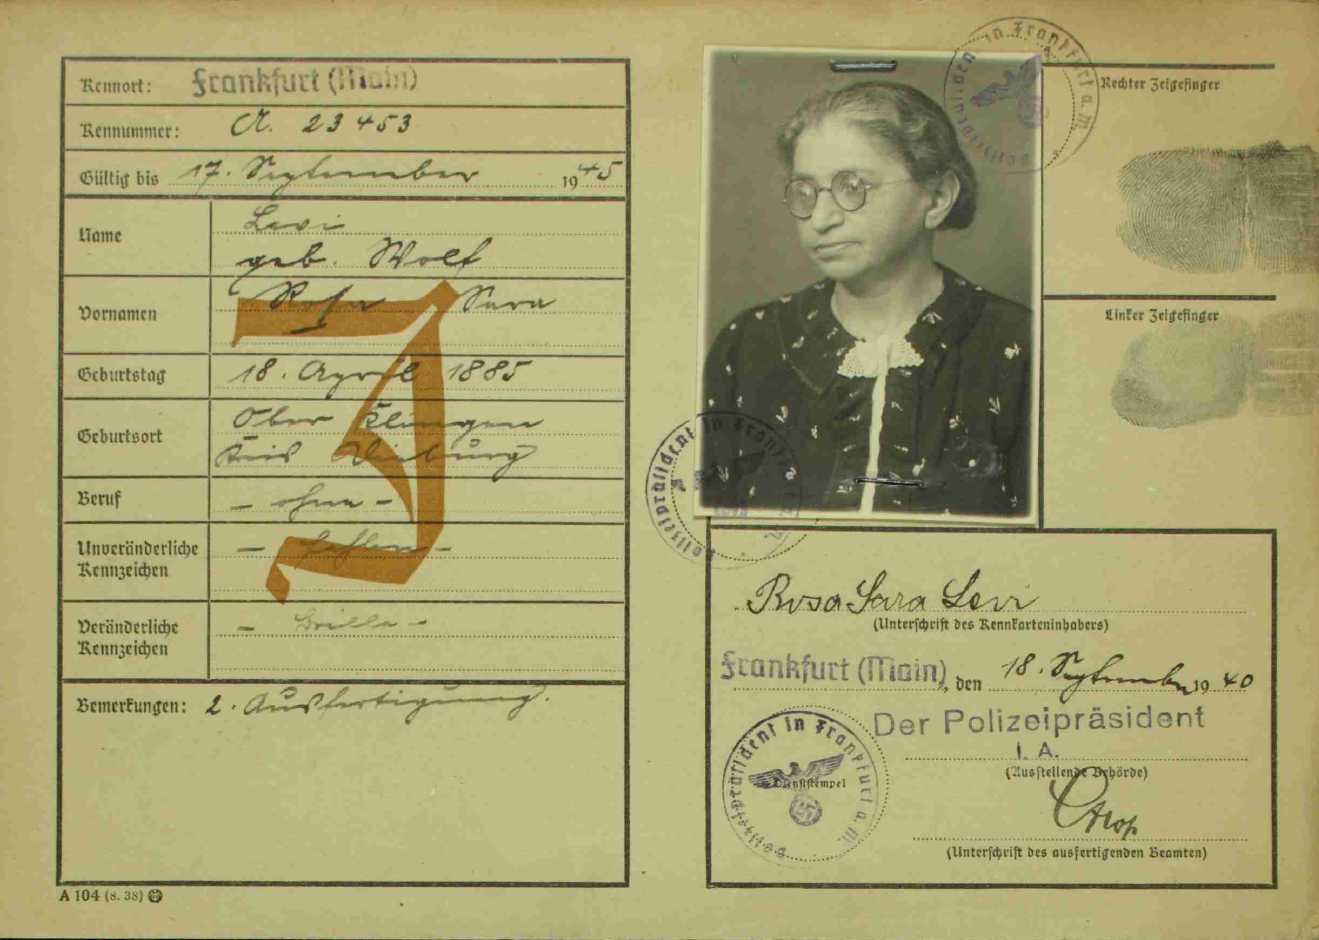 Kennort: Frankfurt (Main)
Kennummer: A. 23453
Gültig bis 17. September 1945
Name Levi
geb. Wolf
Vornamen Rosa Sara
Geburtstag 18. April 1885
Geburtsort Ober Klingen
Kreis Dieburg
Beruf – ohne –
Unveränderliche Kennzeichen – fehlen –
Veränderliche Kennzeichen – Brille –
Bemerkungen: 2. Ausfertigung.
J
A 104 (8. 38)
Rechter Zeigefinger
Linker Zeigefinger
Polizeipräsident in Frankfurt a. M.
Polizeipräsident in Frankfurt
Rosa Sara Levi
(Unterschrift des Kennkarteninhabers)
Frankfurt (Main), den 18. September 1940
Der Polizeipräsident
I. A.
(Ausstellende Behörde)
Polizeipräsident in Frankfurt a. M.
Dienststempel
(Unterschrift des ausfertigenden Beamten)